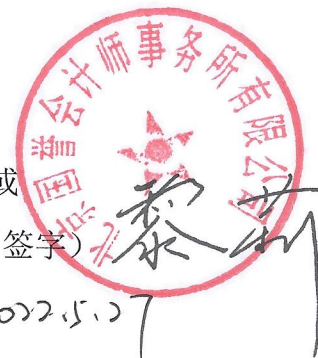 北京国普会计师事务所有限公司
或
签字)
黎莉
2022.5.27